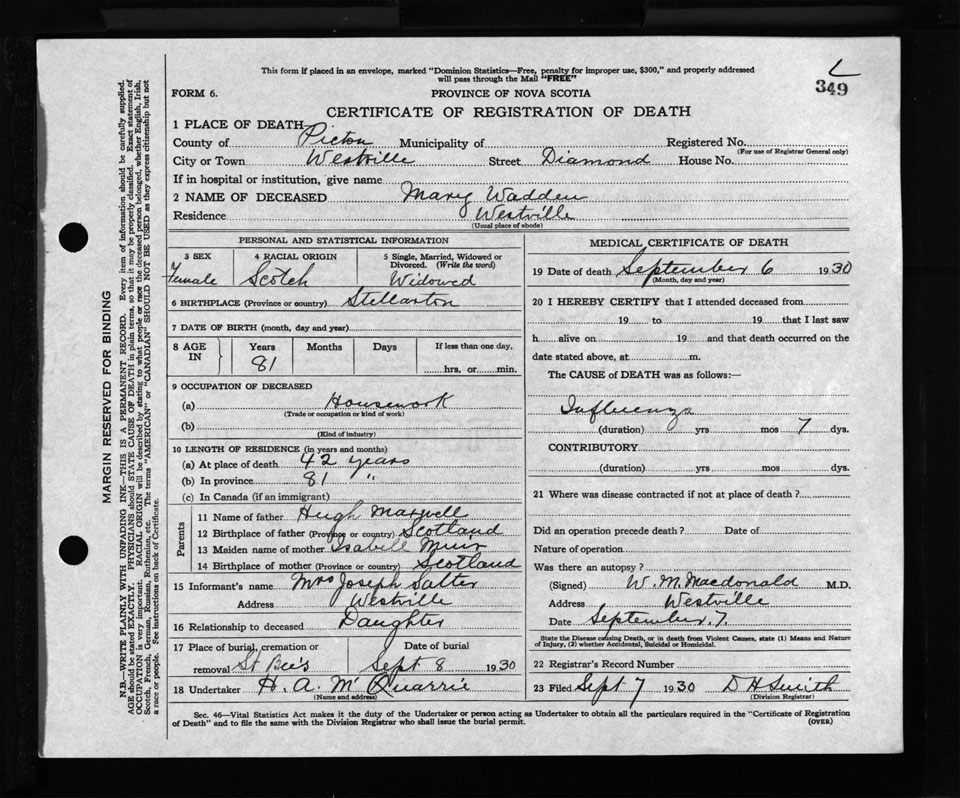 This form if placed in an envelope, marked "Dominion Statistics—Free, penalty for improper use, $300," and properly addressed
will pass through the Mail "FREE"
L
349
FORM 6.
PROVINCE OF NOVA SCOTIA
CERTIFICATE OF REGISTRATION OF DEATH
1 PLACE OF DEATH
County of Pictou Municipality of Registered No.
(For use of Registrar General only)
City or Town Westville Street Diamond House No.
If in hospital or institution, give name
2 NAME OF DECEASED Mary Wadden
Residence Westville
(Usual place of abode)
PERSONAL AND STATISTICAL INFORMATION
3 SEX 4 RACIAL ORIGIN 5 Single, Married, Widowed or
Divorced. (Write the word)
Female Scotch Widowed
6 BIRTHPLACE (Province or country) Stellarton
7 DATE OF BIRTH (month, day and year)
8 AGE IN Years Months Days If less than one day,
81 hrs. or min.
9 OCCUPATION OF DECEASED
(a) Housework
(Trade or occupation or kind of work)
(b)
(Kind of industry)
10 LENGTH OF RESIDENCE (in years and months)
(a) At place of death 42 years
(b) In province 81 "
(c) In Canada (if an immigrant)
Parents
11 Name of father Hugh Maxwell
12 Birthplace of father (Province or country) Scotland
13 Maiden name of mother Isabell Muir
14 Birthplace of mother (Province or country) Scotland
15 Informant's name Mrs Joseph Salter
Address Westville
16 Relationship to deceased Daughter
17 Place of burial, cremation or Date of burial
removal St Bee's Sept 8 1930
18 Undertaker H. A. McQuarrie
(Name and address)
MEDICAL CERTIFICATE OF DEATH
19 Date of death September 6 1930
(Month, day and year)
20 I HEREBY CERTIFY that I attended deceased from
19 to 19 that I last saw
h alive on 19 and that death occurred on the
date stated above, at m.
The CAUSE of DEATH was as follows:—
Influenza
(duration) yrs mos 7 dys.
CONTRIBUTORY
(duration) yrs. mos. dys.
21 Where was disease contracted if not at place of death?
Did an operation precede death? Date of
Nature of operation
Was there an autopsy?
(Signed) W. M. Macdonald M.D.
Address Westville
Date September. 7.
State the Disease causing Death, or in death from Violent Causes, state (1) Means and Nature
of Injury, (2) whether Accidental, Suicidal or Homicidal.
22 Registrar's Record Number
23 Filed Sept 7 1930 D H Smith
(Division Registrar)
Sec. 46—Vital Statistics Act makes it the duty of the Undertaker or person acting as Undertaker to obtain all the particulars required in the "Certificate of Registration
of Death" and to file the same with the Division Registrar who shall issue the burial permit.
(OVER)
MARGIN RESERVED FOR BINDING
N.B.—WRITE PLAINLY WITH UNFADING INK—THIS IS A PERMANENT RECORD. Every item of information should be carefully supplied.
AGE should be stated EXACTLY. PHYSICIANS should STATE CAUSE OF DEATH in plain terms, so that it may be properly classified. Exact statement of
OCCUPATION is very important. RACIAL ORIGIN will be described by stating to what people or race the deceased person belonged, whether English, Irish,
Scotch, French, German, Russian, Ruthenian, etc. The terms "AMERICAN" or "CANADIAN" SHOULD NOT BE USED as they express citizenship but not
a race or people. See instructions on back of Certificate.